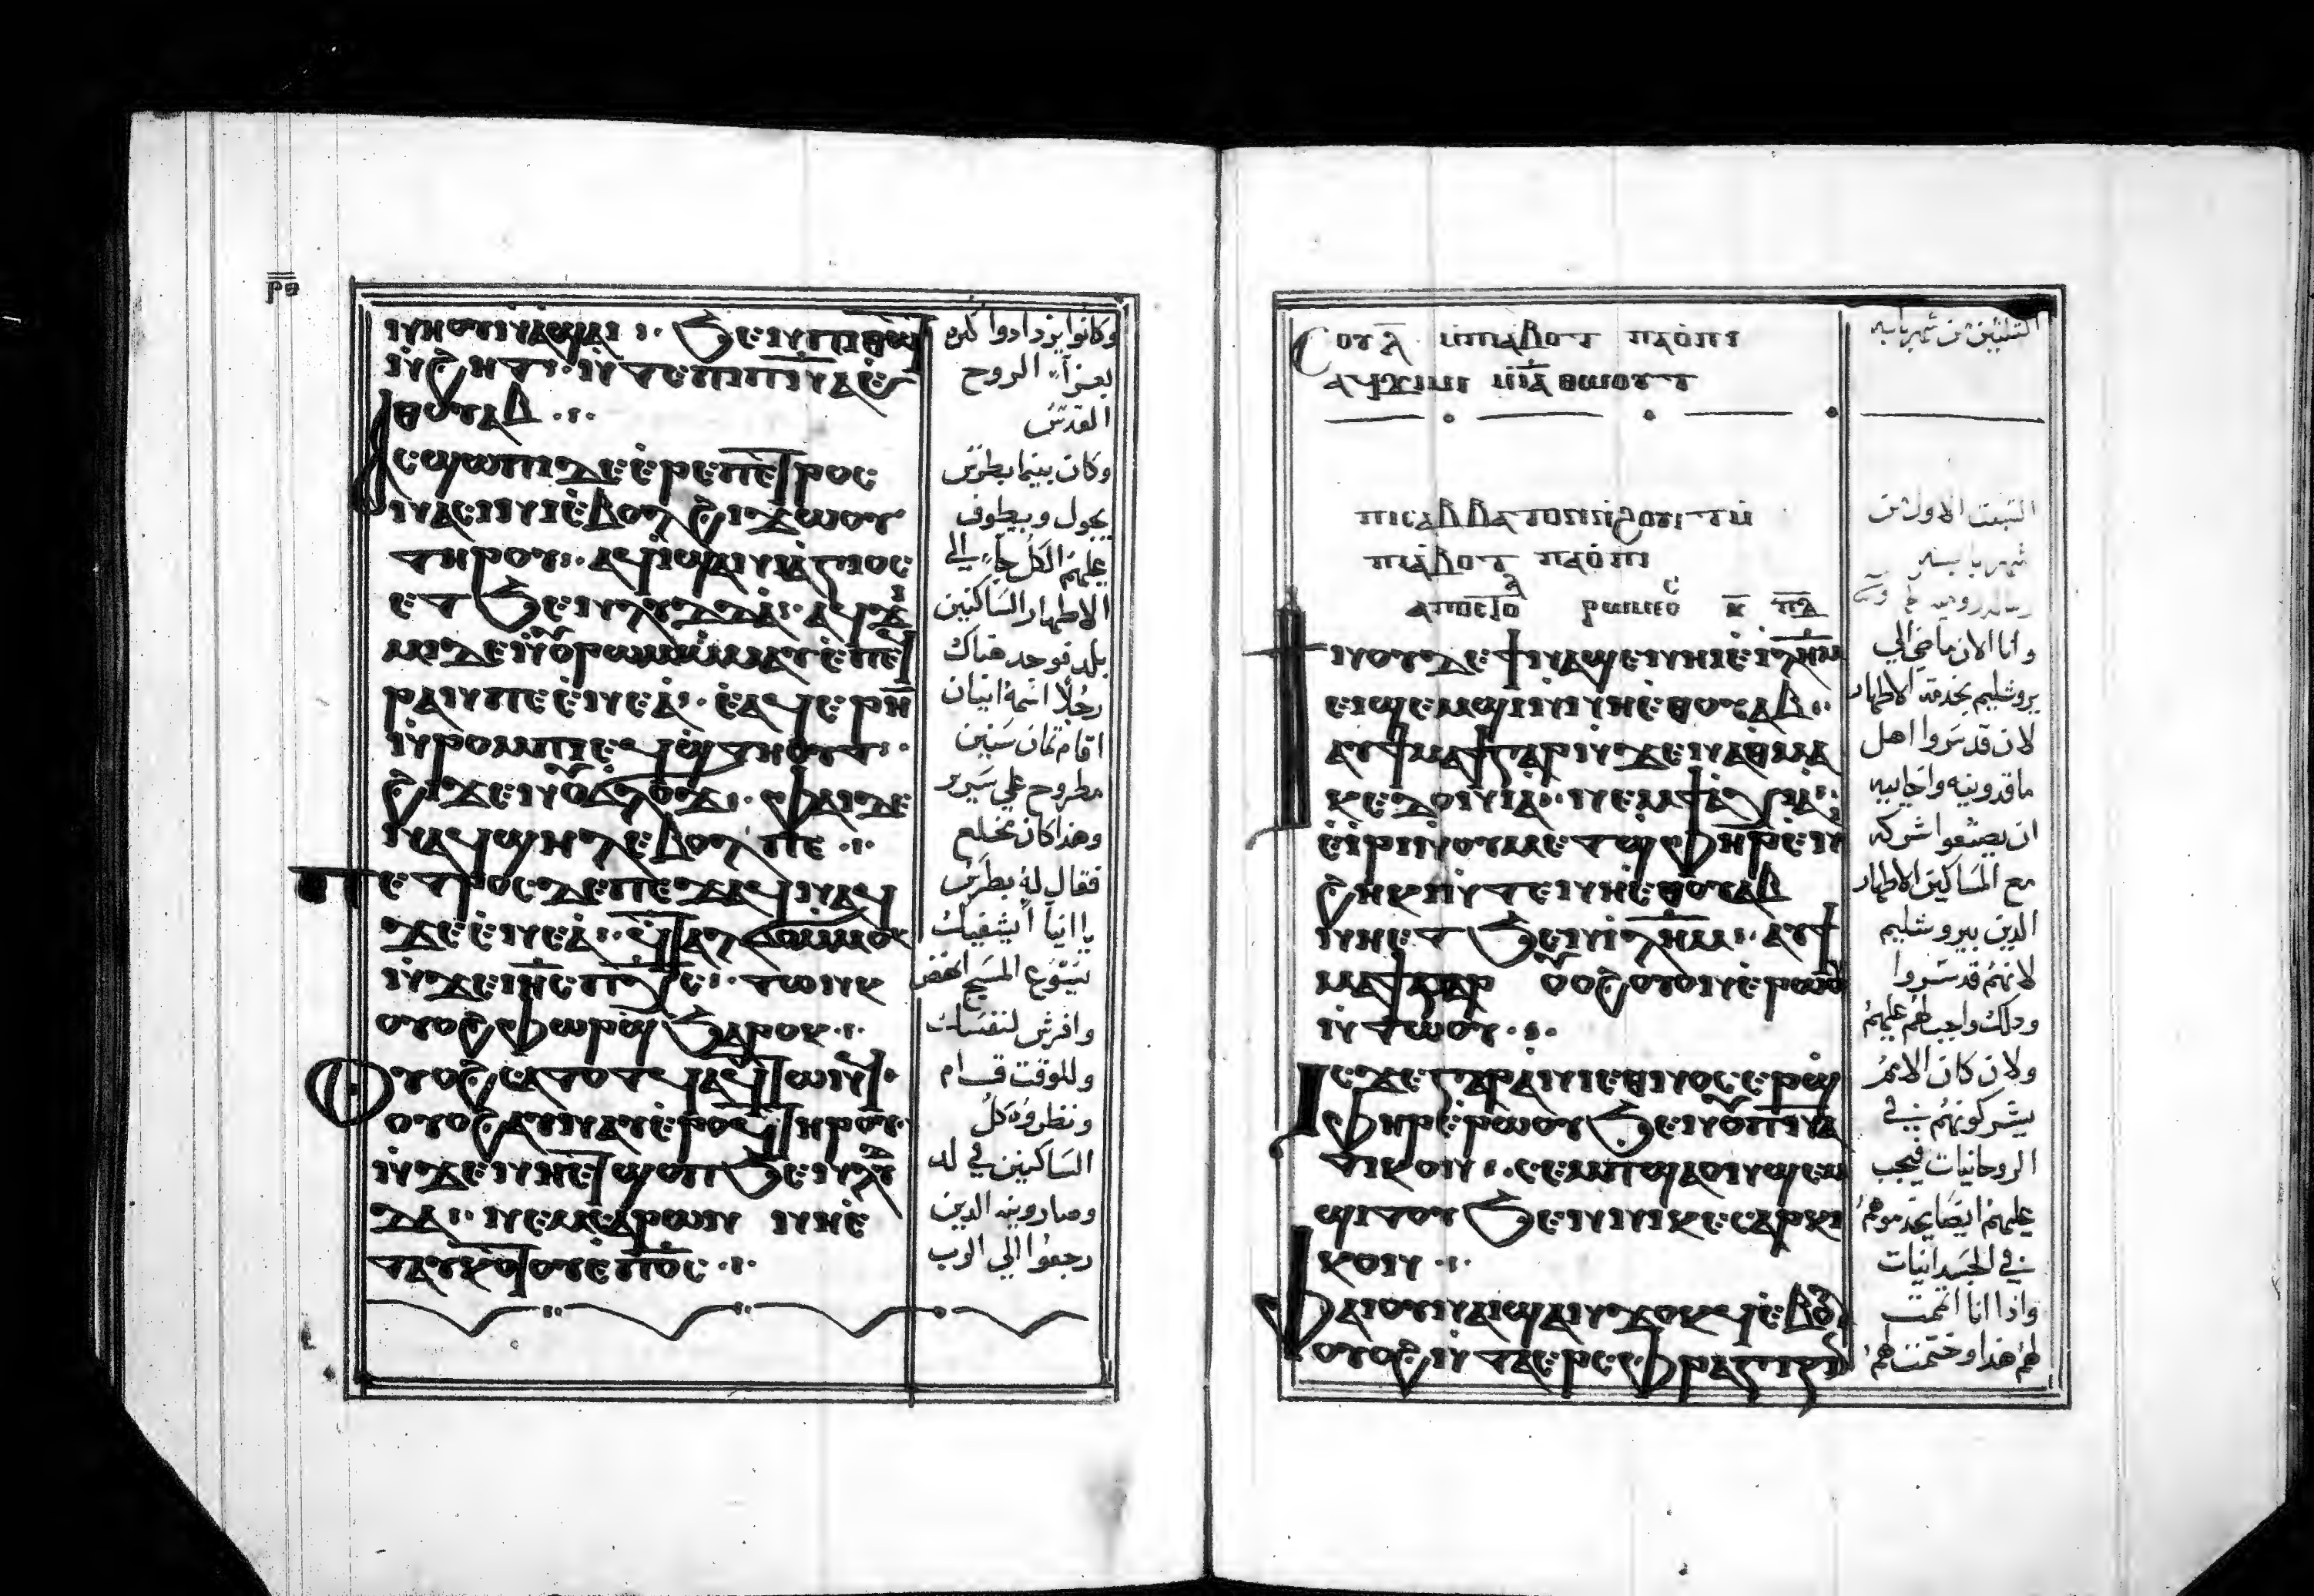 ⲣⲑ
ⲛⲏⲟⲩⲛⲁϣⲁⲓ ⳿ ϧⲉⲛⲡⲓⲑⲱⲧ
ⲛϩⲏⲧ ⲛⲧⲉⲡⲓⲡⲛⲁⲉ
ⲑⲟⲩⲁⲃ
ⲁⲥϣⲱⲡⲓⲇⲉⲉⲣⲉⲡⲉⲧⲣⲟⲥ
ⲛⲁⲥⲓⲛⲓⲉⲃⲟⲗϩⲓϫⲱⲟⲩ
ⲧⲏⲣⲟⲩ ⲁϥⲓϣⲁⲛⲓⲁⲅⲓⲟⲥ
ⲉⲧϧⲉⲛⲗⲩⲇⲇⲁ ⲁϥϫⲓ
ⲙⲓⲇⲉⲛⲟⲩⲣⲱⲙⲓⲙⲙⲁⲩⲉⲡⲉϥ
ⲣⲁⲛⲡⲉⲉⲛⲉⲁ ⲉⲁϥⲉⲣⲏ
ⲛⲣⲟⲙⲡⲓⲉϥϣⲧⲏⲟⲩⲧ
ϩⲓϫⲉⲛⲟⲩϭⲗⲟϫ ⲫⲁⲓⲇⲉ
ⲛⲁϥϣⲏⲗⲉⲃⲟⲗⲡⲉ
ⲡⲉⲧⲣⲟⲥⲇⲉⲡⲉϫⲁϥⲛⲁϥ
ϫⲉⲉⲛⲉⲁ ϥⲧⲁⲗϭⲟⲙⲙⲟⲕ
ⲛϫⲉⲓⲏⲥⲡⲭⲥ ⲧⲱⲛⲕ
ⲟⲩⲟϩⲫⲱⲣϣϧⲁⲣⲟⲕ
ⲟⲩⲟϩⲥⲁⲧⲟⲧϥⲁϥⲧⲱⲛϥ
ⲟⲩⲟϩⲁⲩⲛⲁⲩⲉⲣⲟϥⲧⲏⲣⲟⲩ
ⲛϫⲉⲛⲏⲉⲧϣⲟⲡϧⲉⲛⲗⲩⲇ
ⲇⲁ ⲛⲉⲙⲥⲁⲣⲱⲛ ⲛⲏⲉ
ⲧⲁⲩⲕⲟⲧⲟⲩⲉⲡϭⲥ
وكانوا يزدادوا كثره
بعزاء الروح
القدس
وكان بينما بطرس
يجول ويطوف
عليهم الكل جاء الي
الاطهار الساكنين
بلد فوجد هناك
رجلا اسمه انيان
اقام ثمان سنين
مطروح علي سرير
وهذا كان مخلع
فقال له بطرس
يا انيا يشفيك
يسوع المسيح انهض
وافرش لنفسك
وللوقت قام
ونظروه كل
الساكنين في لد
وصارونه الذين
رجعوا الي الرب
ⲥⲟⲩⲗ ⲙⲡⲓⲁⲃⲟⲧ ⲡⲁⲟⲡⲓ
ⲁⲩϫⲓⲙⲓ ⲓⲁ ⲑⲱⲟⲩⲧ
ⲡⲓⲥⲁⲃⲃⲁⲧⲟⲛⲛϩⲟⲩⲓⲧⲛ
ⲡⲓⲁⲃⲟⲧ ⲡⲁⲟⲡⲓ
ⲁⲡⲟⲥⲧⲟⲗ ⲣⲱⲙⲉⲟⲥ ⲕ ⲡⲇ
ϯⲛⲟⲩⲇⲉϯⲛⲁϣⲉⲛⲏⲓⲉⲓⲗⲏⲙ
ⲉⲓϣⲉⲙϣⲓⲛⲛⲏⲉⲑⲟⲩⲁⲃ
ⲁⲩϯⲙⲁϯⲅⲁⲣⲛϫⲉⲛⲁⲑⲙⲁ
ⲕⲉⲇⲟⲛⲓⲁ ⲛⲉⲙϯⲁⲭⲁⲓⲁ
ⲉⲓⲣⲓⲛⲟⲩⲙⲉⲧϣⲫⲏⲣⲉⲛ
ϩⲏⲕⲓⲛⲧⲉⲛⲏⲉⲑⲟⲩⲁⲃ
ⲛⲏⲉⲧϧⲉⲛⲓⲗⲏⲙ ⲁⲩϯ
ⲙⲁϯⲅⲁⲣ ⲟⲩⲟϩⲟⲩⲟⲛⲉⲣⲱⲟⲩ
ⲛⲧⲱⲟⲩ
ⲓⲥϫⲉⲅⲁⲣⲁⲛⲓⲉⲑⲛⲟⲥⲉⲣϣ
ⲫⲏⲣⲉⲣⲱⲟⲩϧⲉⲛⲟⲩⲡⲛⲁ
ⲧⲓⲕⲟⲛ ⲥⲉⲙⲡϣⲁⲟⲛϣⲉⲙ
ϣⲓⲧⲟⲩϧⲉⲛⲛⲓⲕⲉⲥⲁⲣⲕⲓ
ⲕⲟⲛ
ⲫⲁⲓⲟⲩⲛⲁⲓϣⲁⲛϫⲟⲕϥⲉⲃⲟⲗ
ⲟⲩⲟϩⲛⲧⲁⲉⲣⲥⲫⲣⲁⲅⲓⲍⲓⲛ
الثلثين من شهر بابه
السبت الاول من
شهر بابه
وانا الان ماضي الي
يروشليم بخدمة الاطهار
لان قد سروا اهل
ماقدونيه واخاييه
ان يصنعوا شركه
مع المساكين الاطهار
الذين بيروشليم
لانهم قد سروا
وذلك واجب لهم عليهم
ولان كان الامم
يشركونهم في
الروحانيات فيجب
عليهم ايضا يخدموهم
في الجسدانيات
واذا انا اتممت
لهم هذا وختمت لهم